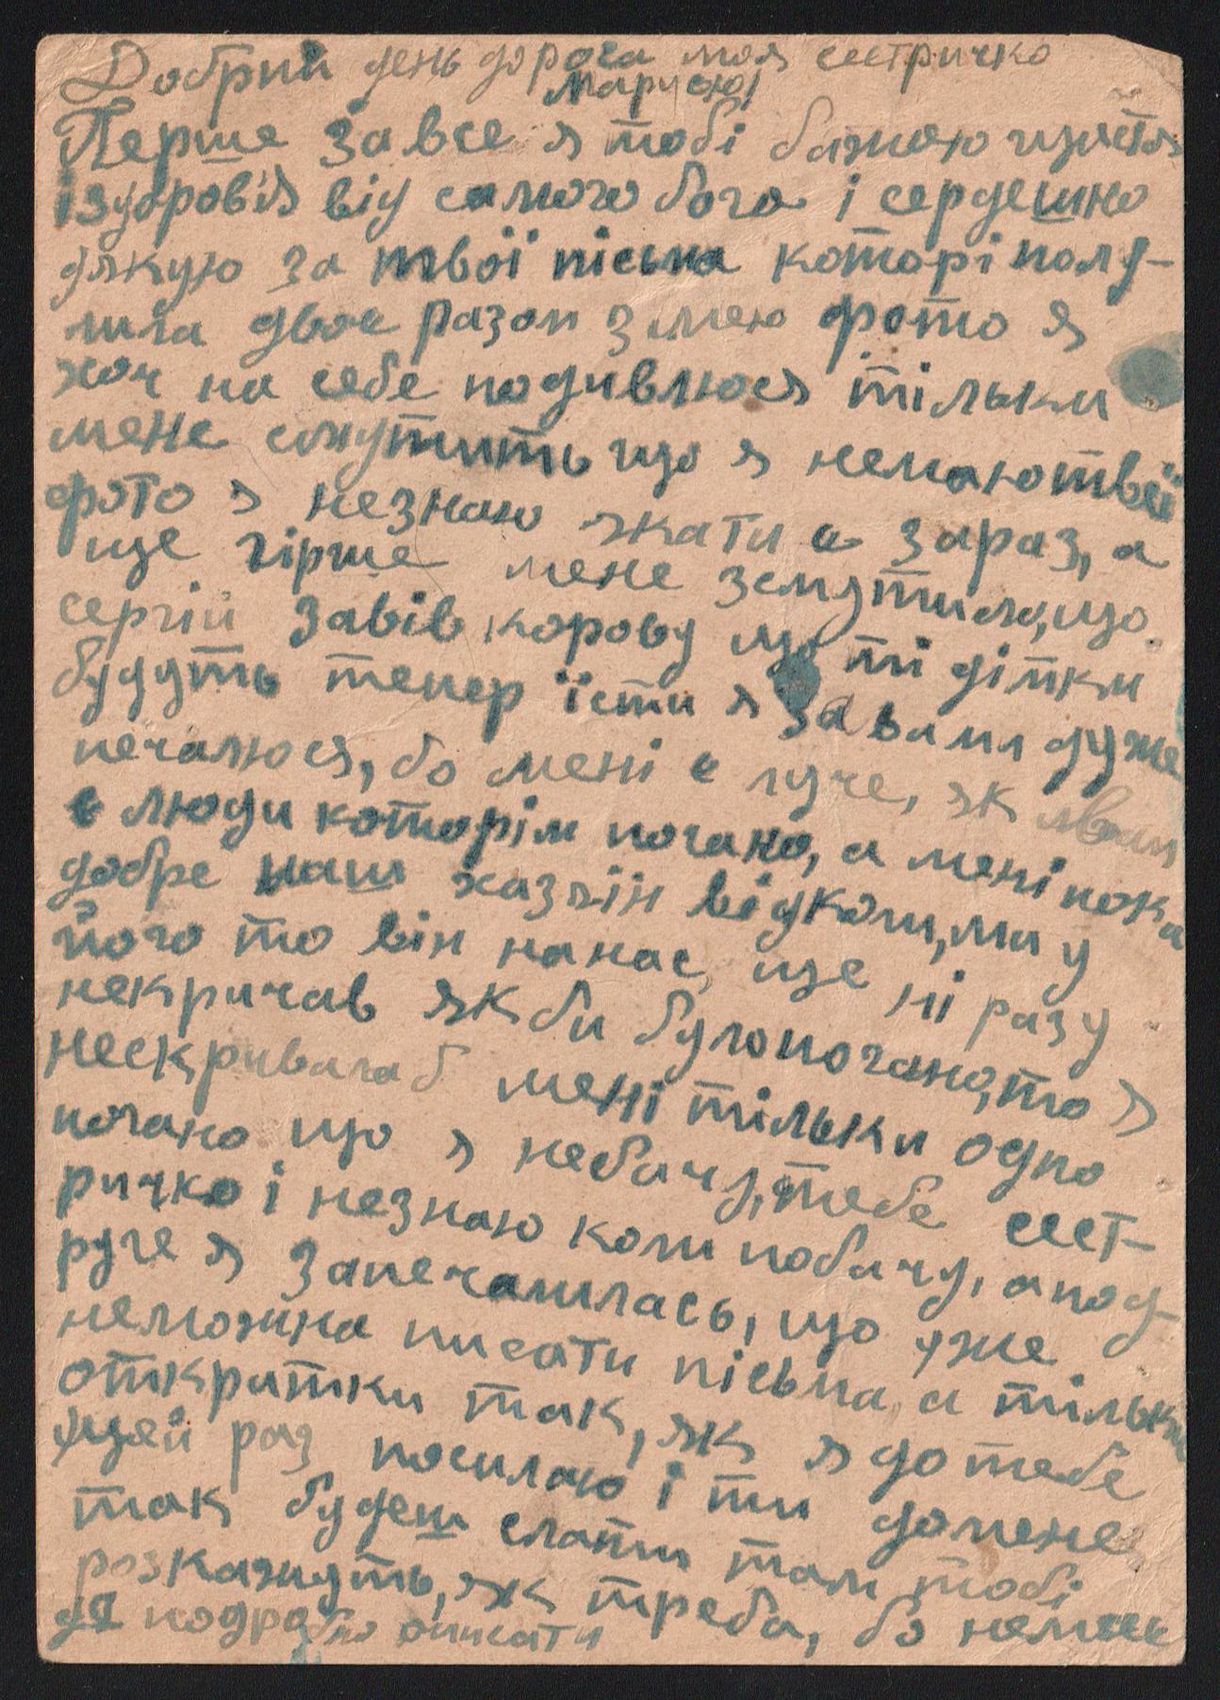 Добрий день дорога моя сестричко
Марусю!
Перше завсе я тобі бажаю щастя
і здоров'я від самого бога і сердешно
дякую за твої пісьма которі полу-
чила двоє разом з моєю фото я
хоч на себе подивлюся тільки
мене смутить що я немаю твеї
фото я незнаю яка ти є зараз, а
ще гірше мене змутило, що
сергій завів корову що ті дітки
будуть тепер їсти я за вами дуже
печалюся, бо мені є луче, як вам
є люди которім погано, а мені пока
добре наш хазяїн відколи, ми у
його то він нанас ще ні разу
некричав як би було погано, то я
нескривалаб мені тільки одно
погано що я небачу, тебе сест-
ричко і незнаю коли побачу, а под-
руге я запечалилась, що уже
неможна писати пісьма, а тільки
откритки так, як я до тебе
уцей раз посилаю і ти домене
так будеш слати там тобі
розкажуть, як треба, бо немає
де подрабно описати